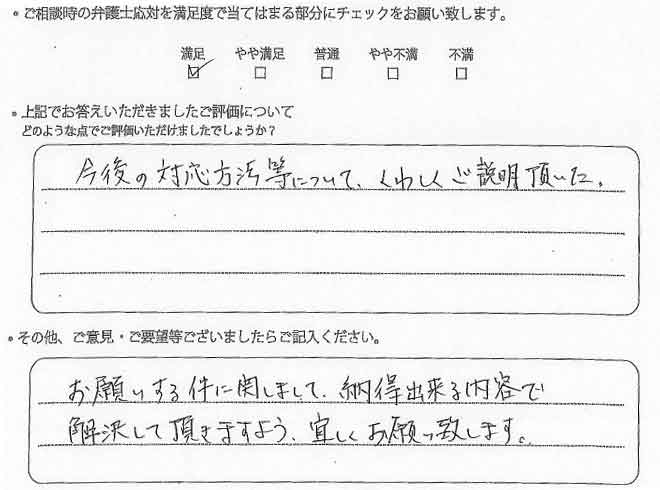 ・ご相談時の弁護士応対を満足度で当てはまる部分にチェックをお願い致します。
満足 やや満足 普通 やや不満 不満
☑ ☐ ☐ ☐ ☐
・上記でお答えいただきましたご評価について
どのような点でご評価いただけましたでしょうか?
今後の対応方法等について、くわしくご説明頂いた。
・その他、ご意見・ご要望等ございましたらご記入ください。
お願いする件に関しまして、納得出来る内容で
解決して頂きますよう、宜しくお願い致します。